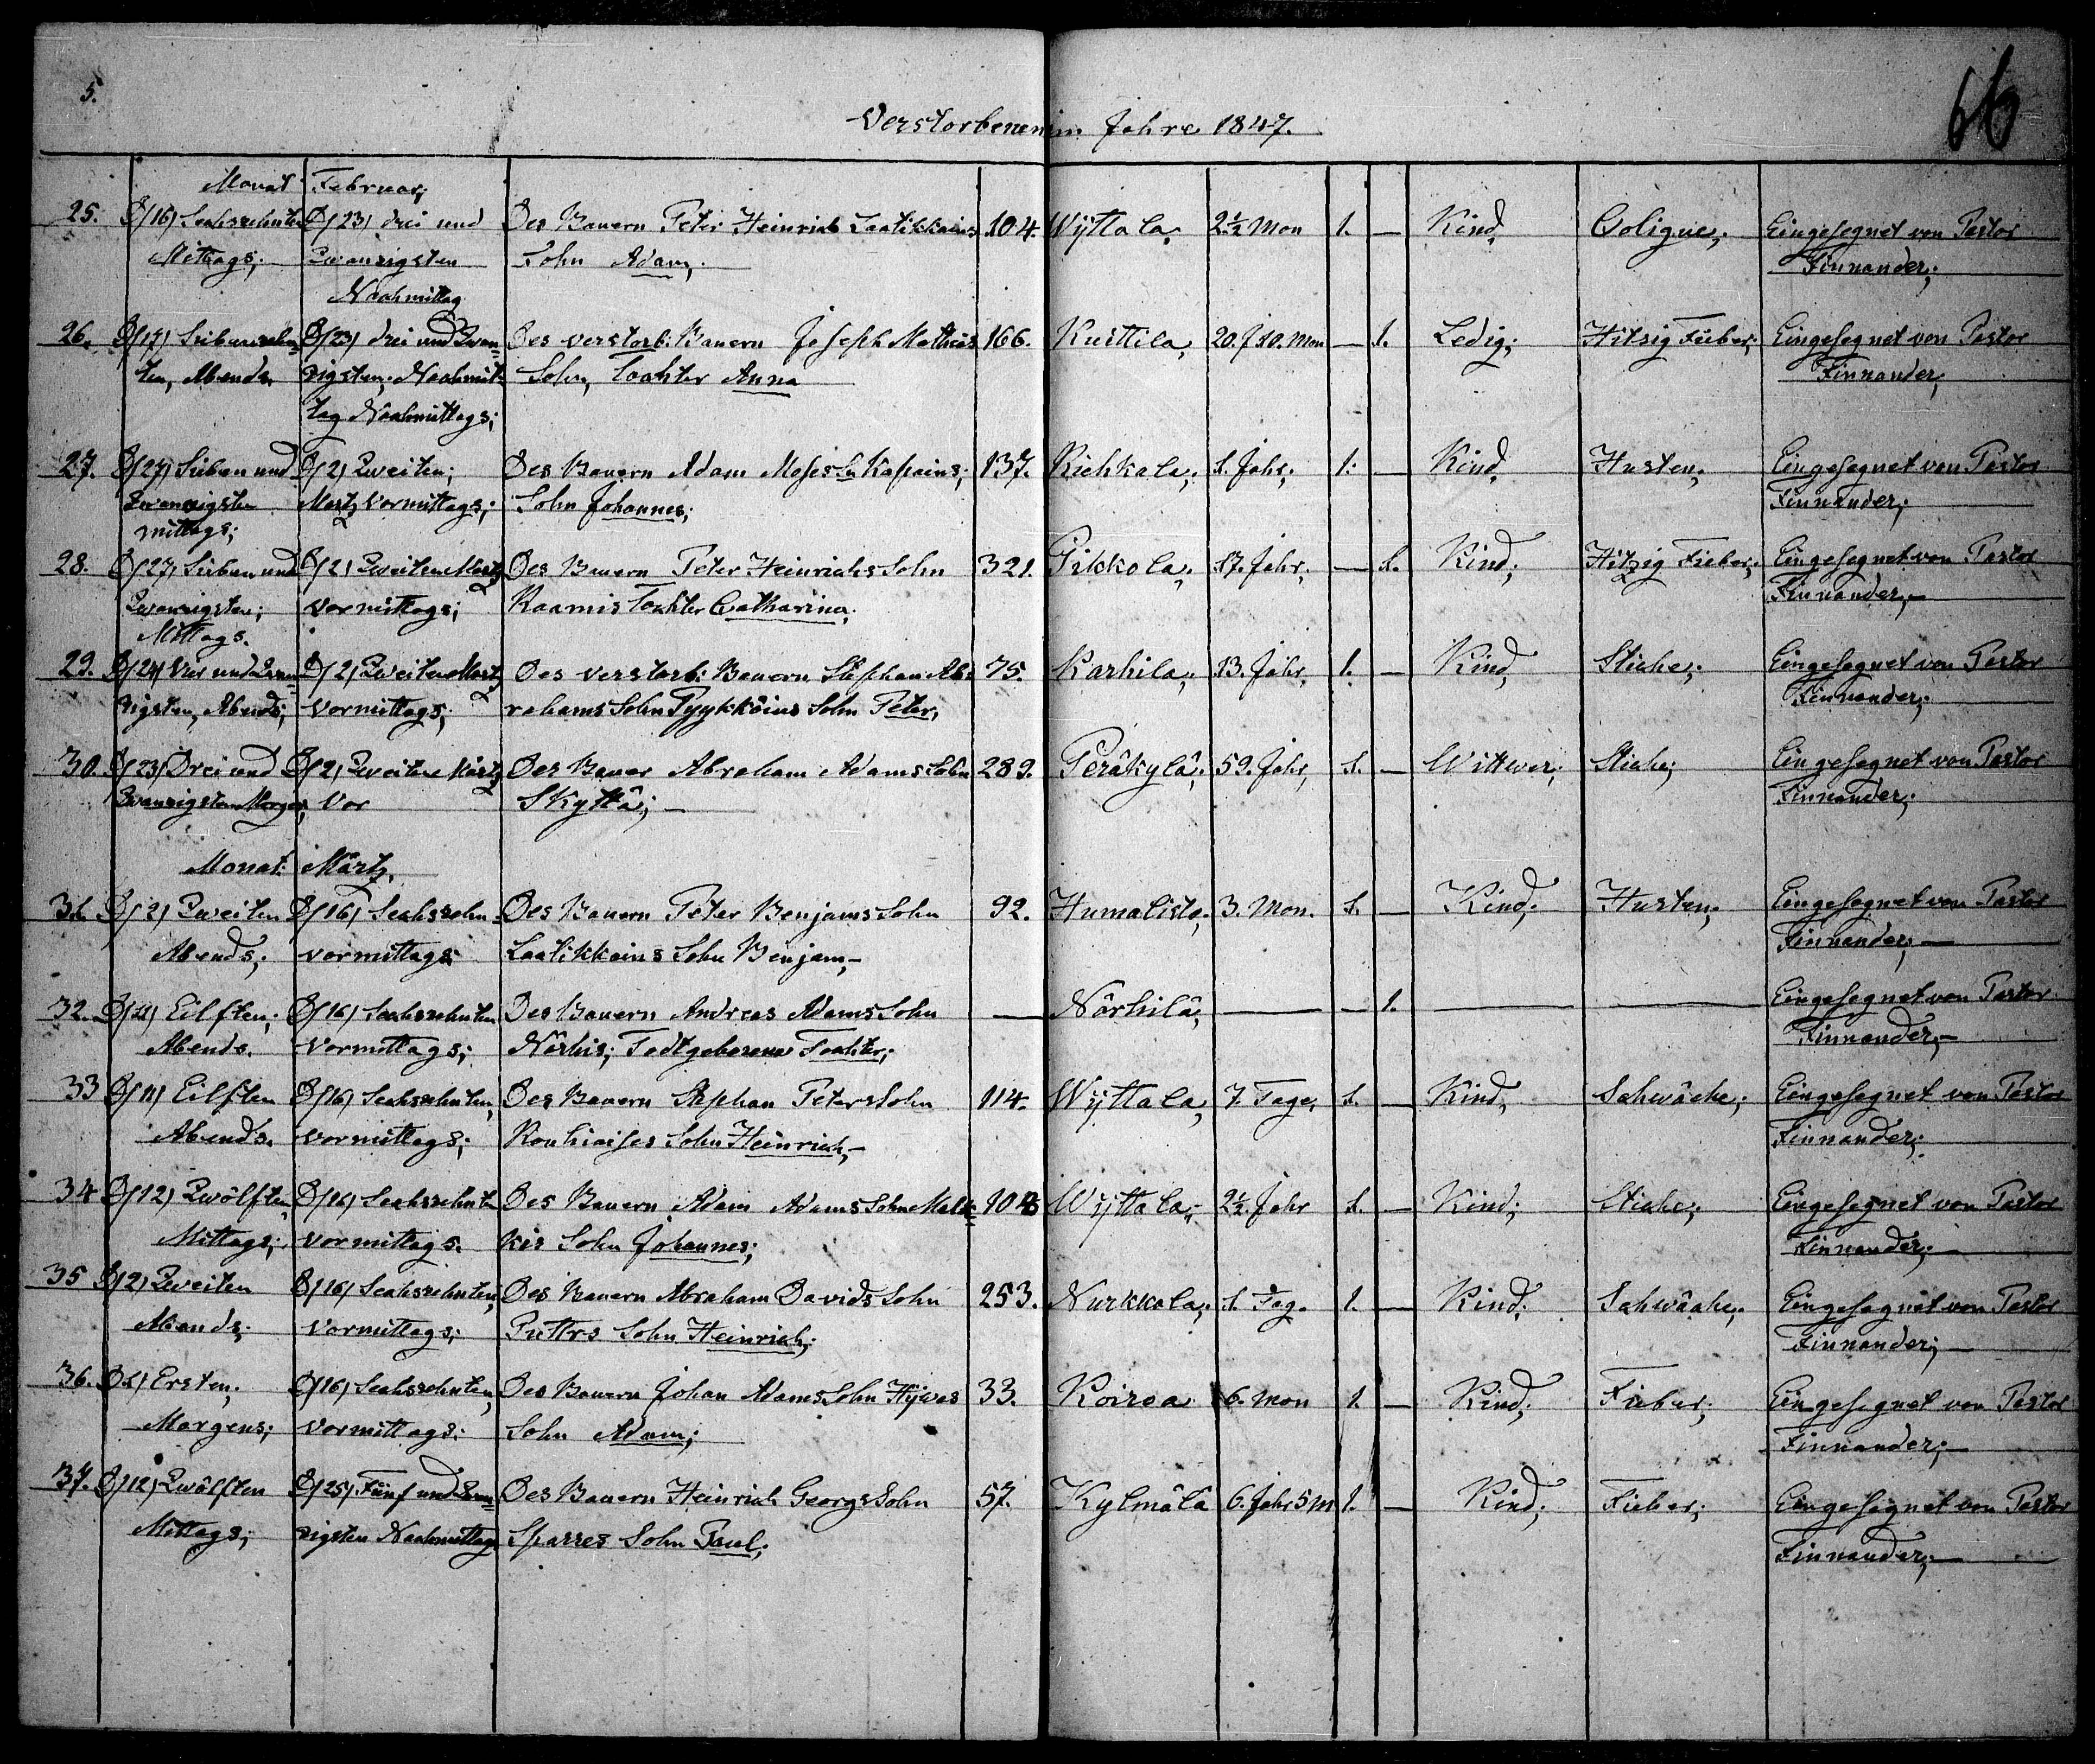 5.
66
Verstorbenen im Jahre 1847.
Monat Februar;
25. D/16/ Sechszehnten D/23/ drei und Des Bauern Peter Heinrichs Laatikkains 104. Wÿttala, 2½ Mon 1. — Kind, Colique, Eingesegnet von Pastor
Mittags; Zwanzigsten Sohn Adam, Finnander;
Nachmittag
26. D/17/ Siebenzehn= D/23/ drei und Zwan= Des verstorb: Bauern Joseph Mathias 166. Kusttila, 20. J 10. Mon — 1. Ledig; Hitzig Fieber; Eingesegnet von Pastor
ten, Abends. zigsten, Nachmit= Sohn, Tochter Anna Finnander,
tag Nachmittags;
27. D/27/ Sieben und D/2/ Zweiten; Des Bauern Adam Moses Kapains; 137. Kiehkala; 1. Jahr; 1. — Kind, Husten, Eingesegnet von Pastor
Zwanzigsten Martz Vormittags; Sohn Johannes; Finnander;
mittags;
28. D/27/ Sieben und D/2/ Zweiten Martz Des Bauern Peter Heinrichs Sohn 321. Pikkola; 17. Jahr, — 1. Kind; Hitzig Fieber; Eingesegnet von Pastor
Zwanzigsten; Vormittags; Raamis Tochter Catharina. Finnander,—
Mittags.
29. D/24/ Vier und Zwan= D/2/ Zweiten Martz Des verstorb: Bauern Stephan Ab= 75. Karhila; 13. Jahr, 1. — Kind, Stiche; Eingesegnet von Pastor
zigsten, Abends; Vormittags; rahams Sohn Pyykköins Sohn Peter, Finnander;
30. D/23/ Drei und D/2/ Zweiten Märtz Der Bauer Abraham Adams Sohn 289. Peräkylä; 59. Jahr, 1. — Wittwer; Stiche; Eingesegnet von Pastor
Zwanzigsten Morgen, Vor Skyttä; — Finnander;
Monat: Märtz,
31. D/2/ Zweiten D/16/ Sechszehn= Des Bauern Peter Benjams Sohn 92. Humalisto; 3. Mon. 1. — Kind; Husten; Eingesegnet von Pastor
Abends; vormittags Laatikkains Sohn Benjam,— Finnander; —
32. D/11/ Eilften; D/16/ Sechszehnten Des Bauern Andreas Adams Sohn — Närhilä, — — 1. — — Eingesegnet von Pastor
Abends. Vormittags; Närhis; Todtgeborene Tochter; Finnander,—
33 D/11/ Eilften D/16/ Sechszehnten, Des Bauern Stephan Peters Sohn 114. Wÿttala, 7. Tage, 1. — Kind, Schwäche; Eingesegnet von Pastor
Abends. vormittags; Rouhiaises Sohn Heinrich,— Finnander;
34 D/12/ Zwölften, D/16/ Sechszehnten Des Bauern Adam Adams Sohn Mals= 104 Wÿttala; 2½. Jahr 1. — Kind; Stiche; Eingesegnet von Pastor
Mittags; vormittags. kis Sohn Johannes; Finnander; —
35 D/2/ Zweiten D/16/ Sechszehnten, Des Bauern Abraham Davids Sohn 253. Nurkkala; 1. Tag. 1. — Kind; Schwäche; Eingesegnet von Pastor
Abends; Vormittags; Puttrs Sohn Heinrich; Finnander; —
36. D/1/ Ersten; D/16/ Sechszehnten, Des Bauern Johan Adams Sohn Hÿvas 33. Koirea 6. Mon 1. — Kind; Fieber; Eingesegnet von Pastor
Morgens; vormittags: Sohn Adam; Finnander; —
37. D/12/ Zwölften D/25/ Fünf und Zwan= Des Bauern Heinrich Georgs Sohn 57. Kylmälä 6. Jahr 5 M 1. — Kind; Fieber; Eingesegnet von Pastor
Mittags; zigsten Nachmittag Sparres Sohn Paul; Finnander; —